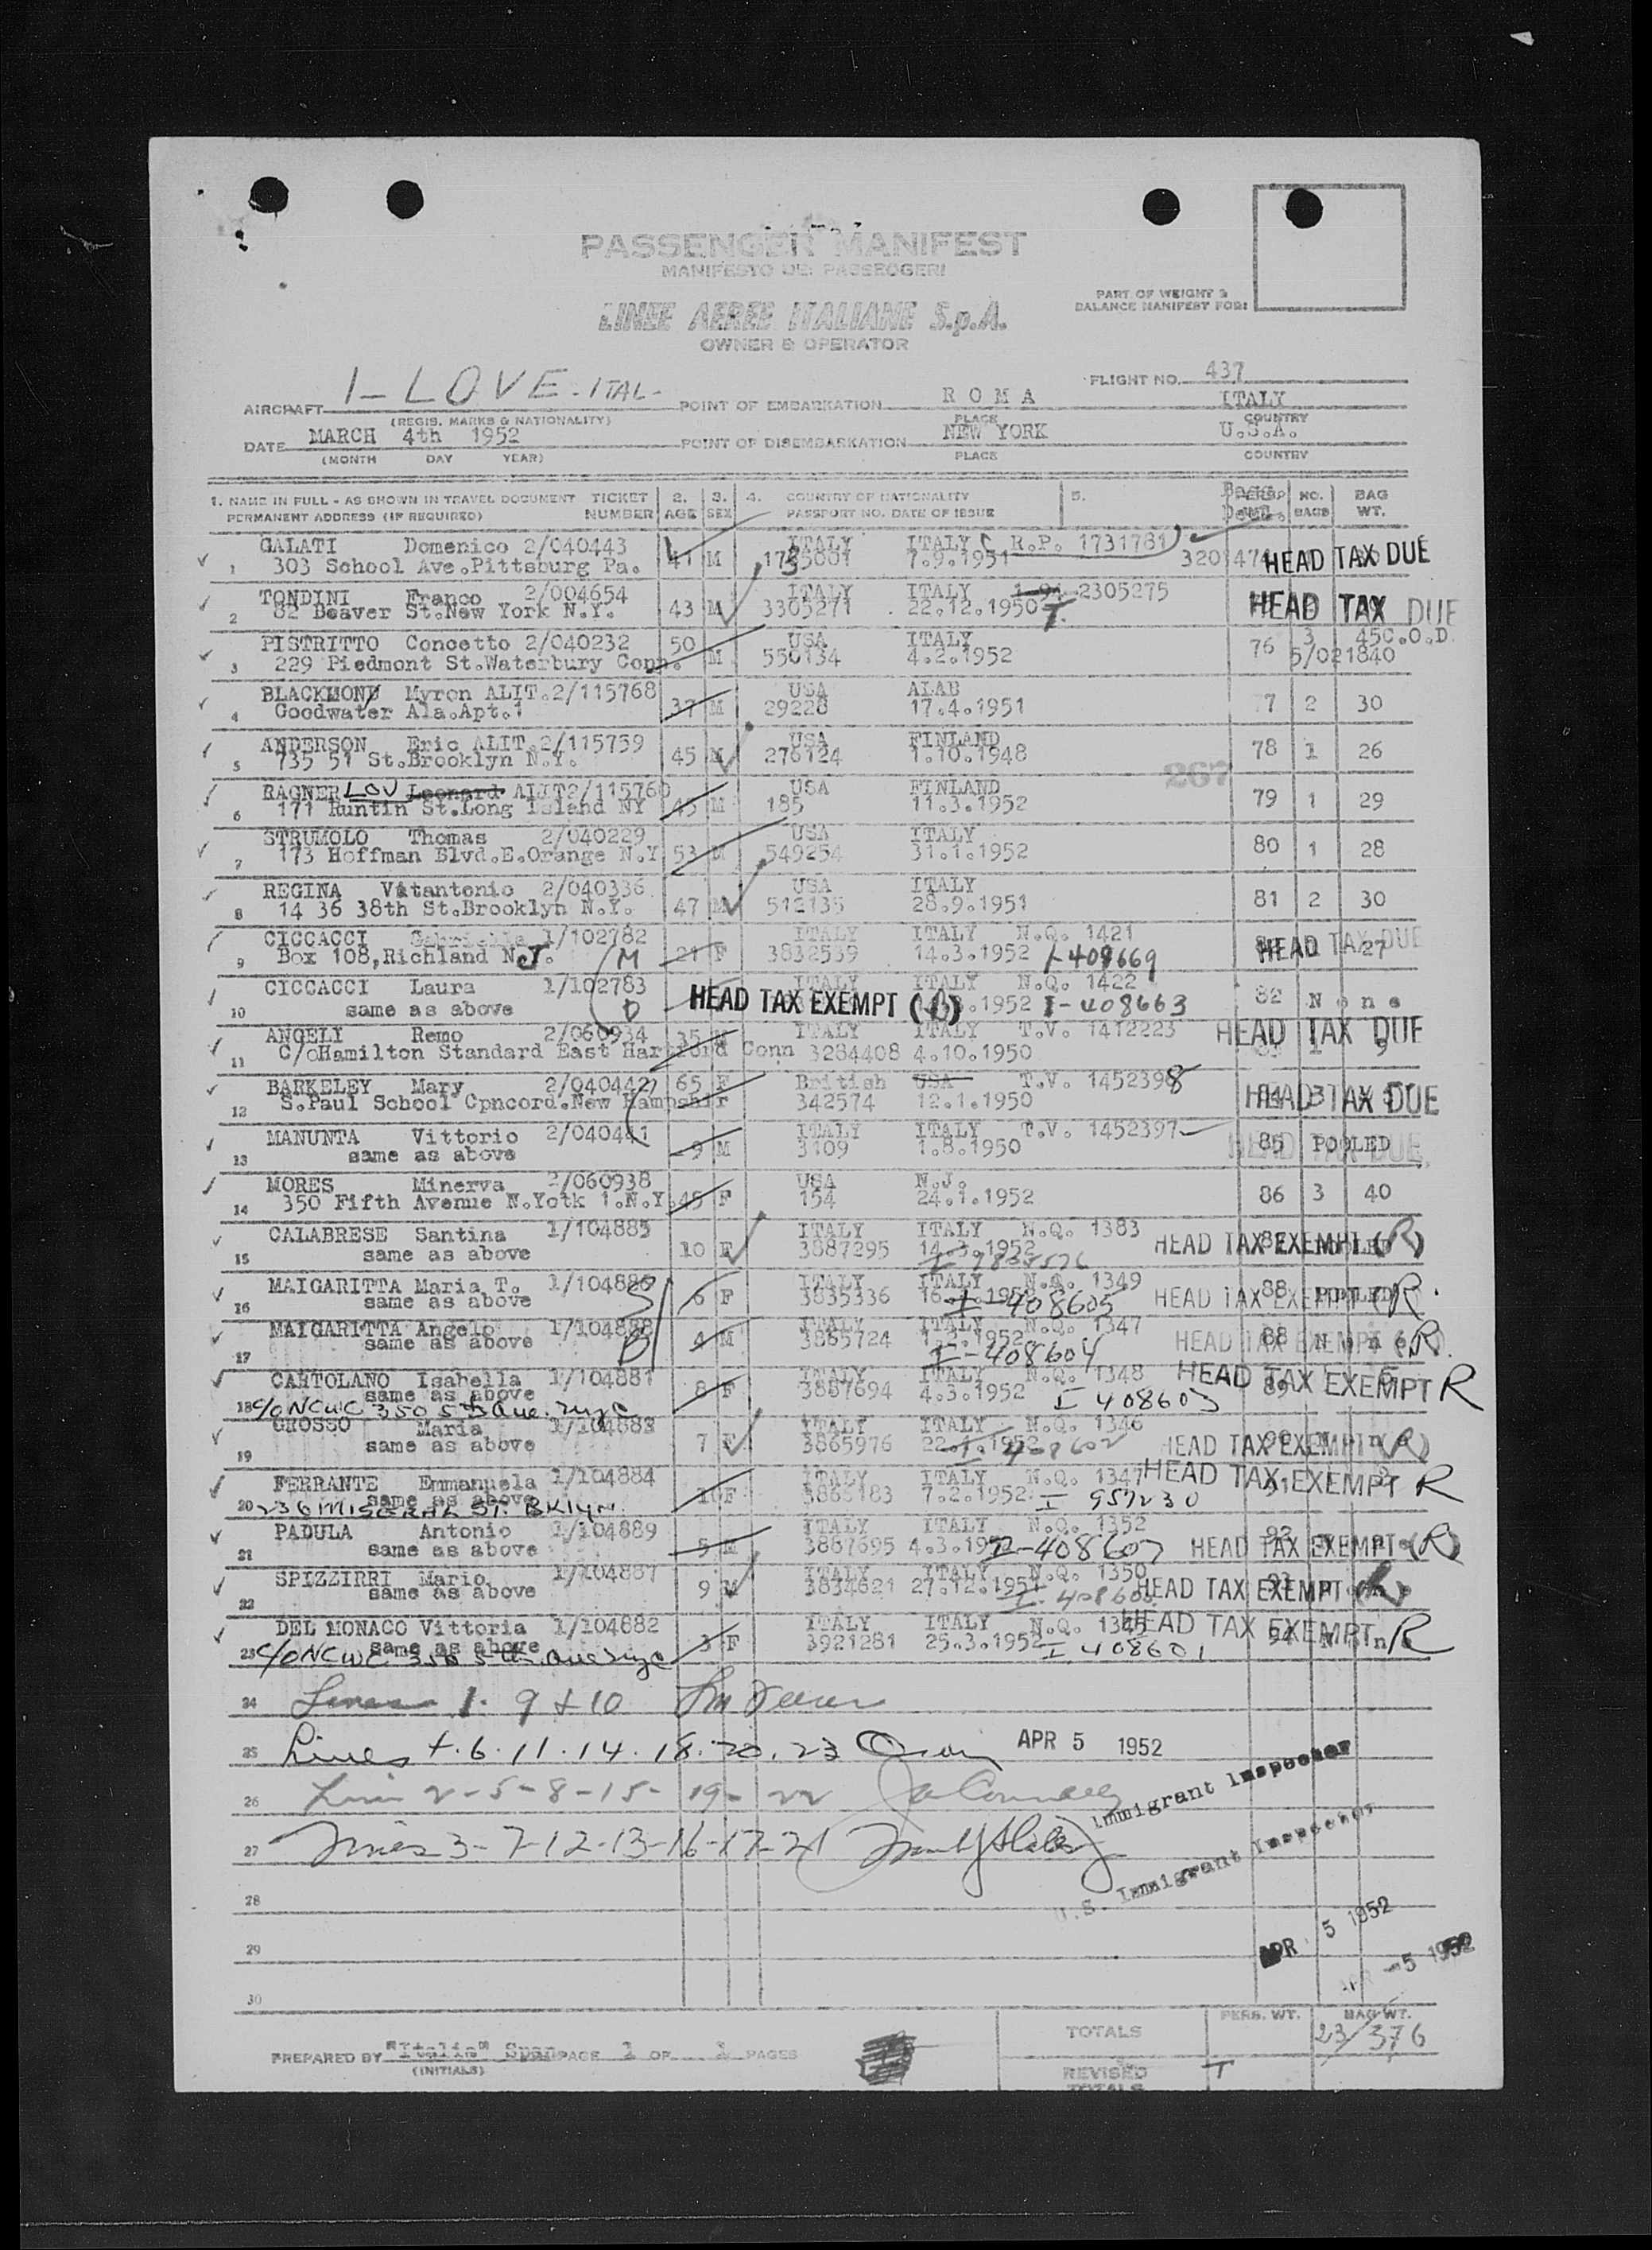 PASSENGER MANIFEST
MANIFESTO DEI PASSEGGERI
LINEE AEREE ITALIANE S.p.A.
OWNER & OPERATOR
PART OF WEIGHT &
BALANCE MANIFEST FOR:
FLIGHT NO. 437
AIRCRAFT I-LOVE-ITAL- POINT OF EMBARKATION ROMA ITALY
(REGIS. MARKS & NATIONALITY) PLACE COUNTRY
DATE MARCH 4th 1952 POINT OF DISEMBARKATION NEW YORK U.S.A.
(MONTH DAY YEAR) PLACE COUNTRY
1. NAME IN FULL - AS SHOWN IN TRAVEL DOCUMENT TICKET 2. 3. 4. COUNTRY OF NATIONALITY 5. NO. BAG
PERMANENT ADDRESS (IF REQUIRED) NUMBER AGE SEX PASSPORT NO. DATE OF ISSUE BAGS WT.
GALATI Domenico 2/040443 ITALY ITALY (R.P. 1731781)
1 303 School Ave.Pittsburg Pa. 41 M 7.9.1951 HEAD TAX DUE
TONDINI Franco 2/004654 ITALY ITALY 2305275
2 82 Beaver St.New York N.Y. 43 M 3305271 22.12.1950 T. HEAD TAX DUE
PISTRITTO Concetto 2/040232 50 USA ITALY 76 3 45 C.O.D.
3 229 Piedmont St.Waterbury Conn. M 550134 4.2.1952 5/021840
BLACKMOND Myron ALIT.2/115768 USA ALAB
4 Goodwater Ala.Apt.1 37 M 29228 17.4.1951 77 2 30
ANDERSON Eric ALIT.2/115759 USA FINLAND
5 735 51 St.Brooklyn N.Y. 45 M 276124 1.10.1948 78 1 26
267
RAGNER LOV Leonard ALIT2/115760 USA FINLAND
6 171 Huntin St.Long Island NY 45 M 185 11.3.1952 79 1 29
STRUMOLO Thomas 2/040229 USA ITALY
7 173 Hoffman Blvd.E.Orange N.Y 53 M 549254 31.1.1952 80 1 28
REGINA Vitantonio 2/040336 USA ITALY
8 14 36 38th St.Brooklyn N.Y. 47 M 512135 28.9.1951 81 2 30
CICCACCI Gabriella 1/102782 ITALY ITALY N.Q. 1421
9 Box 108,Richland N.J. M 21 F 3832539 14.3.1952 I-408669 HEAD TAX DUE 27
CICCACCI Laura 1/102783 ITALY ITALY N.Q. 1422
10 same as above D HEAD TAX EXEMPT (D) .1952 I-408663 82 None
ANGELI Remo 2/060934 35 M ITALY ITALY T.V. 1412223 HEAD TAX DUE
11 C/oHamilton Standard East Hartford Conn 3284408 4.10.1950
BARKELEY Mary 2/040442 65 F British USA T.V. 1452398
12 S.Paul School Cpncord.New Hampshir 342574 12.1.1950 HEAD TAX DUE
MANUNTA Vittorio 2/040441 ITALY ITALY T.V. 1452397
13 same as above 9 M 3109 1.8.1950 85 POOLED HEAD TAX DUE.
MORES Minerva 2/060938 USA N.J.
14 350 Fifth Avenue N.Yotk 1.N.Y. 45 F 154 24.1.1952 86 3 40
CALABRESE Santina 1/104885 ITALY ITALY N.Q. 1383
15 same as above 10 F 3887295 14.3.1952 HEAD TAX EXEMPT (R)
MAIGARITTA Maria T. 1/104886 ITALY ITALY N.Q. 1349
16 same as above S 6 F 3835336 I-408605 HEAD TAX EXEMPT (R. 88
MAIGARITTA Angelo 1/104888 ITALY ITALY N.Q. 1347
17 same as above B 4 M 3865724 1952 I-408604 HEAD TAX EXEMPT (R). 88 None
CARTOLANO Isabella 1/104881 ITALY ITALY N.Q. 1348 HEAD TAX EXEMPT R
same as above 8 F 3887694 4.3.1952 I 408603 89
18 C/o NCWC 350 5th Ave. nyc
GROSSO Maria 1/104883 ITALY ITALY N.Q. 1346
19 same as above 7 F 3865976 I-408602 HEAD TAX EXEMPT (R)
FERRANTE Emmanuela 1/104884 ITALY ITALY N.Q. 1347 HEAD TAX EXEMPT R
same as above 10 F 3863183 7.2.1952 I 957230
20 236 ST. BKLYN
PADULA Antonio 1/104889 ITALY ITALY N.Q. 1352 92
21 same as above 5 M 3887695 4.3.1952 I-408607 HEAD TAX EXEMPT (R)
SPIZZIRRI Mario 1/104887 ITALY ITALY N.Q. 1350 93
22 same as above 9 M 3834621 27.12.1951 HEAD TAX EXEMPT (R)
DEL MONACO Vittoria 1/104882 ITALY ITALY N.Q. 1345 HEAD TAX EXEMPT R
same as above 3 F 3921281 25.3.1952 I 408601 94
23 C/o NCWC 350 5th Ave nyc
24 Lines 1. 9 + 10
25 Lines 4.6.11.14.18.20.23 APR 5 1952
26 Lines 2-5-8-15-19-22
Immigrant Inspector
27 Lines 3-7-12-13-16-17-21
U.S. Immigrant Inspector
28
APR 5 1952
29
APR -5 1952
30
TOTALS PERS. WT. BAG WT.
23/376
PREPARED BY "Italia" Span PAGE 1 OF 1 PAGES
(INITIALS) REVISED
TOTALS